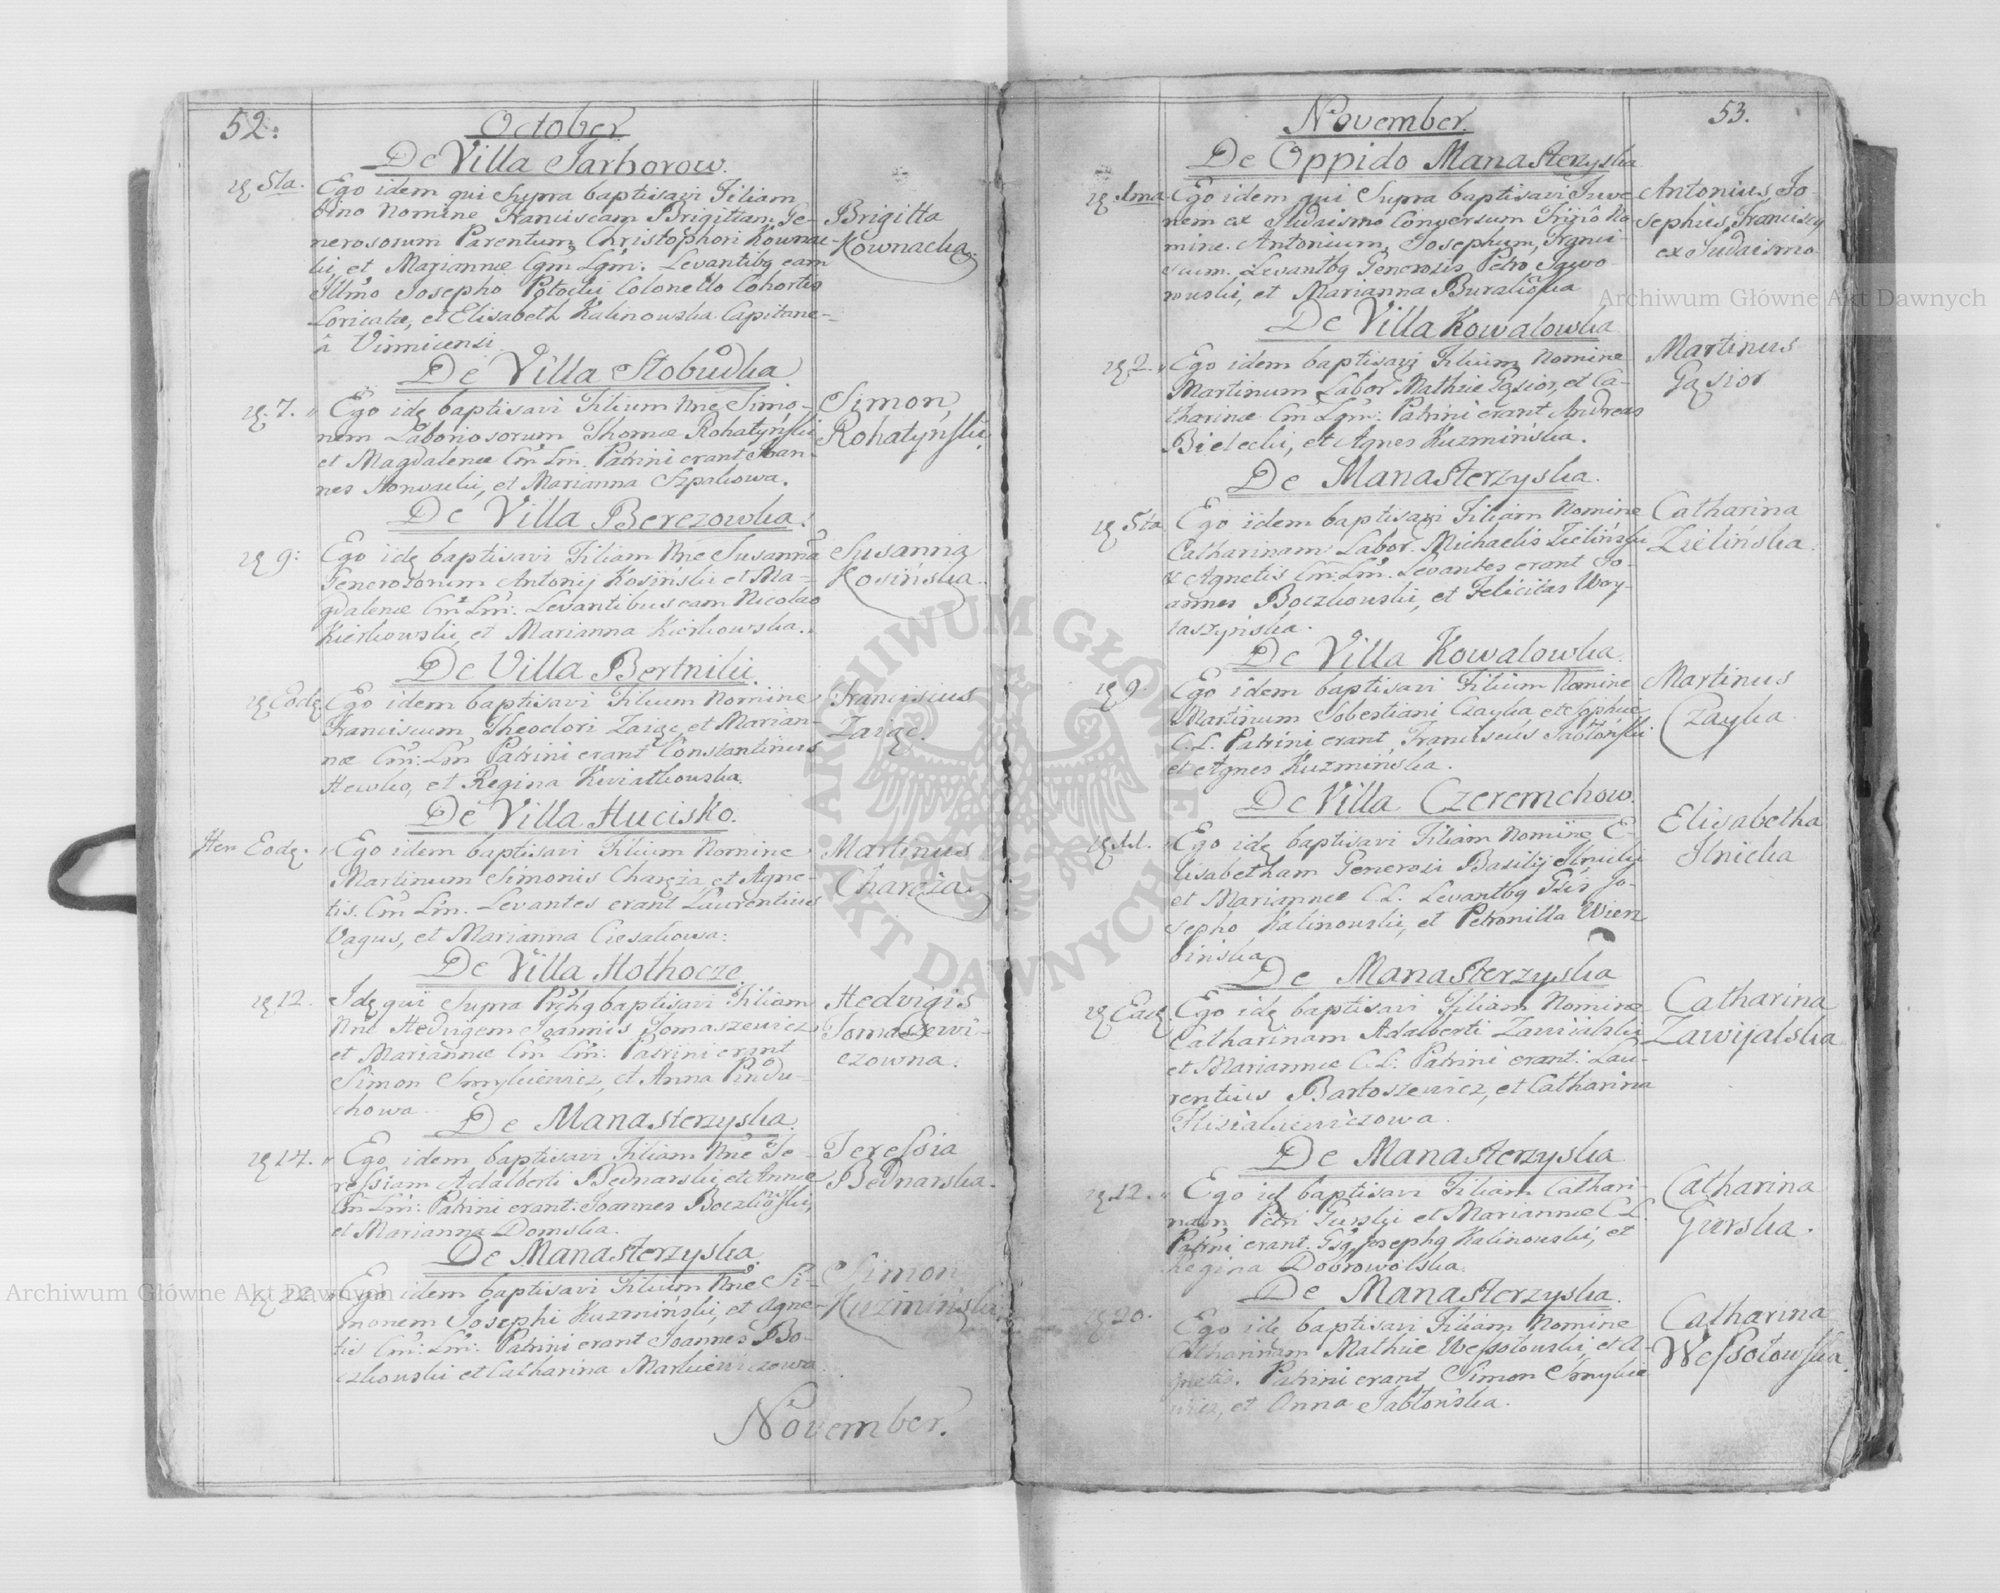 52.
October
De Villa Jarhorow.
5ta. Ego idem qui Supra baptisavi Filiam
bino Nomine Franciscam Brigittam Ge-
nerosorum Parentum Christophori Kownac-
ki, et Mariannæ Cgm Lgm. Levantibq eam
Illmo Josepho Potocki Colonello Cohortis
Loricatæ, et Elisabeth Kalinowska Capitane-
â Vinnicensi
Brigitta
Kownacka.
De Villa Slobudka
7. Ego idę baptisavi Filium Nne Simo-
nem Laboriosorum Thomæ Rohatyński
et Magdalenæ Cm Lm. Patrini erant Joan-
nes Nowacki, et Marianna Szpakowa.
Simon
Rohatyński.
De Villa Berezowka.
9. Ego idę baptisavi Filiam Nne Susanna
Generosorum Antonij Kosiński et Ma-
gdalenæ Cm Lm. Levantibus eam Nicolao
Kierkowski, et Marianna Kierkowska.
Susanna
Kosińska.
De Villa Bertniki.
Eodę Ego idem baptisavi Filium Nomine
Franciscum Theodori Zaiąc, et Marian-
næ Cm: Lm Patrini erant Constantinus
Hewko, et Regina Kwiatkowska.
Franciscus
Zaiąc.
De Villa Hucisko.
Eodę. Ego idem baptisavi Filium Nomine
Martinum Simonis Charęża et Agne-
tis. Cm Lm. Levantes erant Laurentius
Vagus, et Marianna Ciesakowa:
Martinus
Charęża.
De Villa Hothocze.
12. Idę qui Supra baptisavi Filiam
Nne Hedvigem Joannis Tomaszewicz
et Mariannæ Cm Lm: Patrini erant
Simon Smykiewicz, et Anna Pindu-
chowa.
Hedvigis
Tomaszewi-
czowna.
De Manasterzyska.
14. Ego idem baptisavi Filiam Nne Te-
ressiam Adalberti Bednarski et Annæ
Cm Lm: Patrini erant: Joannes Boczkowski,
et Marianna Domska.
Teressia
Bednarska.
De Manasterzyska.
22. Ego idem baptisavi Filium Nne Si-
monem Josephi Kuzmiński, et Agne-
tis Cm: Lm: Patrini erant Joannes Bo-
czkowski et Catharina Markiewiczowa
Simon
Kuzmiński
November.
53.
November.
De Oppido Manasterzyska
1ma Ego idem qui Supra baptisavi Juve
nem ex Judaismo Conversum Trino No
mine. Antonium, Josephum, Franci-
scum. Levantbq Generosis Petro Jawo
rowski, et Marianna
Antonius Jo
sephus, Franciscq
ex Judaismo
De Villa Kowalowka
2. Ego idem baptisavi Filium Nomine
Martinum Labor Mathiæ Gąsior, et Ca-
tharinæ Cm Lgm: Patrini erant Andreas
Bielecki, et Agnes Kuzmińska.
Martinus
Gąsior
De Manasterzyska.
5ta Ego idem baptisavi Filiam Nomine
Catharinam Labor. Michaelis Zieliński
et Agnetis Cm: Lm. Levantes erant Jo-
annes Boczkowski, et Felicitas Woy-
taszyńska.
Catharina
Zielińska
De Villa Kowalowka.
9. Ego idem baptisavi Filium Nomine
Martinum Sobestiani Czayka et Sophiæ
C. L. Patrini erant Franciscus Jabłoński
et Agnes Kuzmińska.
Martinus
Czayka
De Villa Czeremchow.
11. Ego idę baptisavi Filiam Nomine E-
lisabetham Generosi Basilij Ilnicki
et Mariannæ C. L. Levantbq Gsis Jo-
sepho Kalinowski, et Petronilla Wierz
binska
Elisabetha
Ilnicka
De Manasterzyska
Eadę Ego idę baptisavi Filiam Nomine
Catharinam Adalberti Zawijalski
et Mariannæ C. L: Patrini erant: Lau-
rentius Bartoszewicz, et Catharina
Catharina
Zawijalska
De Manasterzyska
12. Ego idę baptisavi Filiam Cathari-
nam Petri Gurski et Mariannæ C L.
Patrini erant. Gsq Josephq Kalinowski, et
Regina Dobrowolska.
Catharina
Gurska.
De Manasterzyska.
20. Ego idę baptisavi Filiam Nomine
Catharinam Mathiæ Wessołowski, et A-
gnetis. Patrini erant Simon Smykie
wicz, et Anna Jabłońska.
Catharina
Wessołowska.
Archiwum Główne Akt Dawnych
Archiwum Główne Akt Dawnych
ARCHIWUM GŁÓWNE AKT DAWNYCH